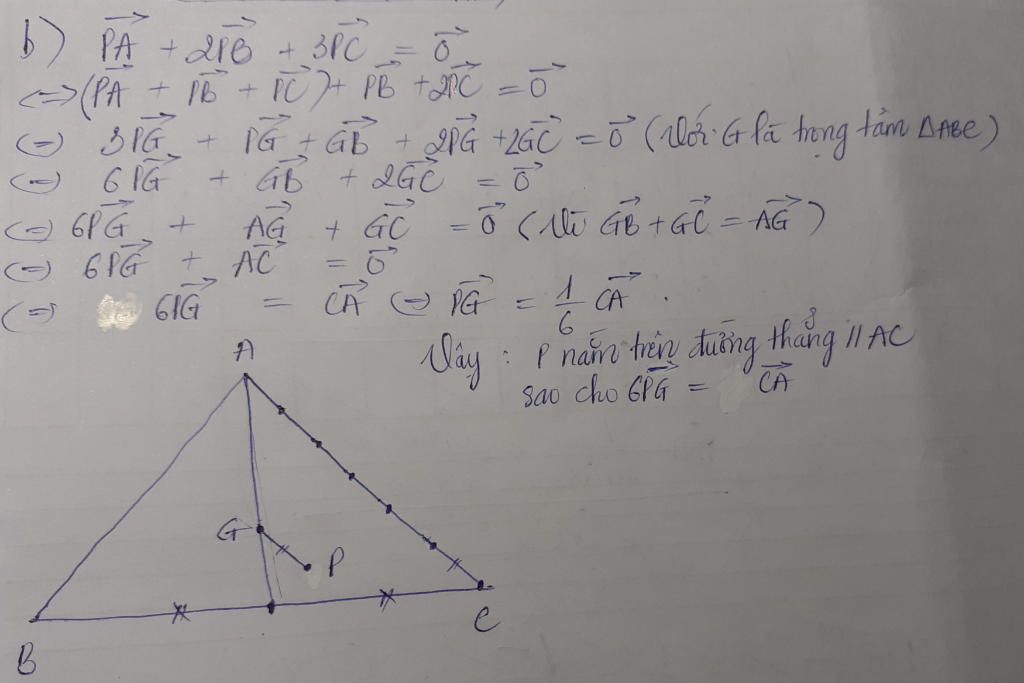 b) PA⃗ + 2PB⃗ + 3PC⃗ = 0⃗
<=> (PA⃗ + PB⃗ + PC⃗) + PB⃗ + 2PC⃗ = 0⃗
<=> 3PG⃗ + PG⃗ + GB⃗ + 2PG⃗ + 2GC⃗ = 0⃗ (Với G là trọng tâm ΔABC)
<=> 6PG⃗ + GB⃗ + 2GC⃗ = 0⃗
<=> 6PG⃗ + AG⃗ + GC⃗ = 0⃗ (Vì GB⃗ + GC⃗ = AG⃗)
<=> 6PG⃗ + AC⃗ = 0⃗
<=> 6PG⃗ = CA⃗ <=> PG⃗ = 1/6 CA⃗.
Vậy : P nằm trên đường thẳng // AC
sao cho 6PG⃗ = CA⃗
A
G
P
B
C